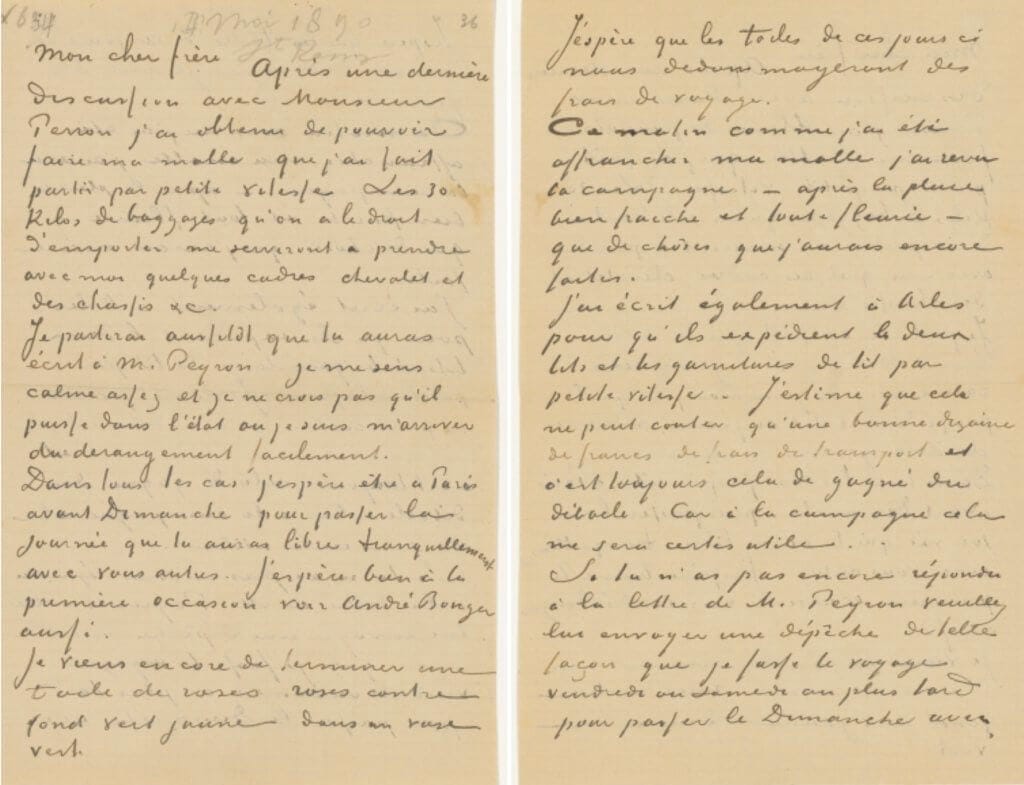 Mai 1890
36
Mon cher frère
Après une dernière
discussion avec Monsieur
Peyron j'ai obtenu de pouvoir
faire ma malle que j'ai fait
partir par petite vitesse Les 30
kilos de baggages qu'on a le droit
d'emporter me serviront à prendre
avec moi quelques cadres chevalet et
des chassis &c.
Je partirai aussitôt que tu auras
écrit à M. Peyron je me sens
calme assez et je ne crois pas qu'il
puisse dans l'état où je suis m'arriver
du dérangement facilement.
Dans tous les cas j'espère être à Paris
avant Dimanche pour passer la
journée que tu auras libre tranquillement
avec vous autres. J'espère bien à la
première occasion voir André Bonger
aussi.
Je viens encore de terminer une
toile de roses roses contre
fond vert jaune dans un vase
vert.
J'espère que les toiles de ces jours ci
nous dedommageront des
frais de voyage.
Ce matin comme j'ai été
affranchir ma malle j'ai revu
la campagne – après la pluie
bien fraiche et toute fleurie –
que de choses que j'aurais encore
faites.
J'ai écrit également à Arles
pour qu'ils expédient les deux
lits et les garnitures de lit par
petite vitesse. J'estime que cela
ne peut couter qu'une bonne dizaine
de francs de frais de transport et
c'est toujours cela de gagné du
débacle Car à la campagne cela
me sera certes utile.
Si tu n'as pas encore répondu
à la lettre de M. Peyron veuillez
lui envoyer une dépêche de telle
façon que je fasse le voyage
vendredi ou samedi au plus tard
pour passer le Dimanche avec